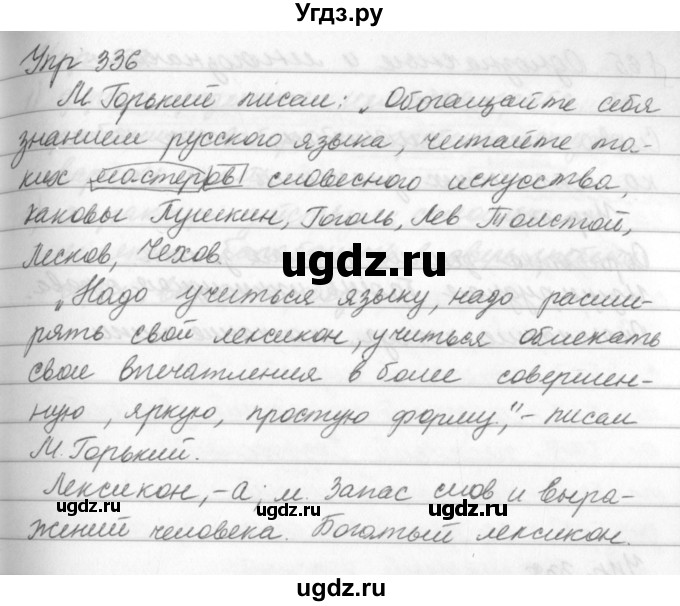 Угдз.ру
Упр 336
М. Горький писал: „Обогащайте себя
знанием русского языка, читайте та-
ких мастеров словесного искусства,
каковы Пушкин, Гоголь, Лев Толстой,
Лесков, Чехов.
ugdz.ru
„Надо учиться языку, надо расши-
рять свой лексикон, учиться облекать
свои впечатления в более совершен-
ную, яркую, простую форму," - писал
М. Горький.
Лексикон, -а; м. Запас слов и выра-
ugdz.ru ugdz.ru
жений человека. Богатый лексикон.
ugdz.ru